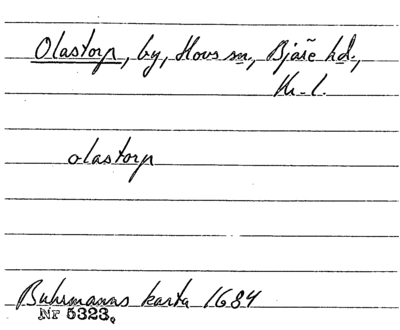 Olastorp, by, Hovs sn., Bjäre hd.,
Kr. l.
olastorp
Buhrmanns karta 1684
Nr 5323.